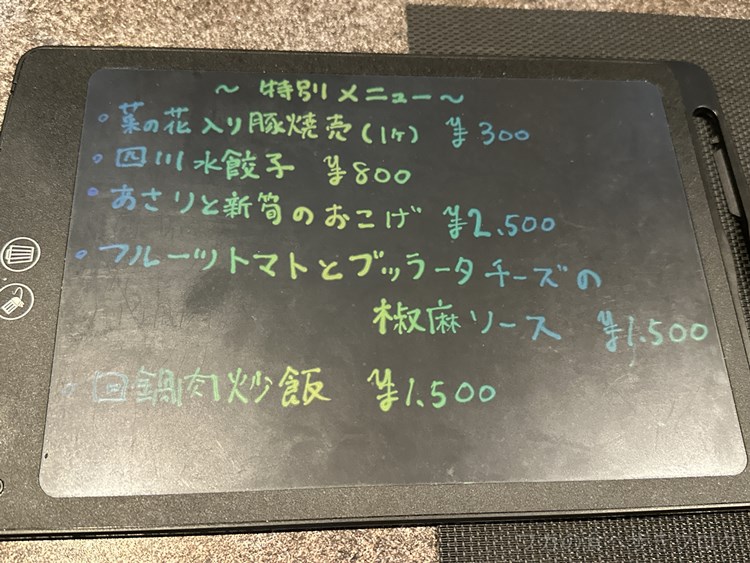 ～ 特別メニュー ～
・菜の花入り豚焼売(1ヶ) ¥300
・四川水餃子 ¥800
・あさりと新筍のおこげ ¥2.500
・フルーツトマトとブッラータチーズの
椒麻ソース ¥1.500
・回鍋肉炒飯 ¥1.500